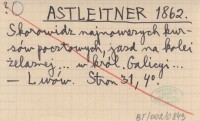 ASTLEITNER 1862.
Skorowidz najnowszych kur-
sów pocztowych, jazd na kolei
żelaznej... w król. Galicyi...
— Lwów. Stron 31, 4°
BJ/002/0343